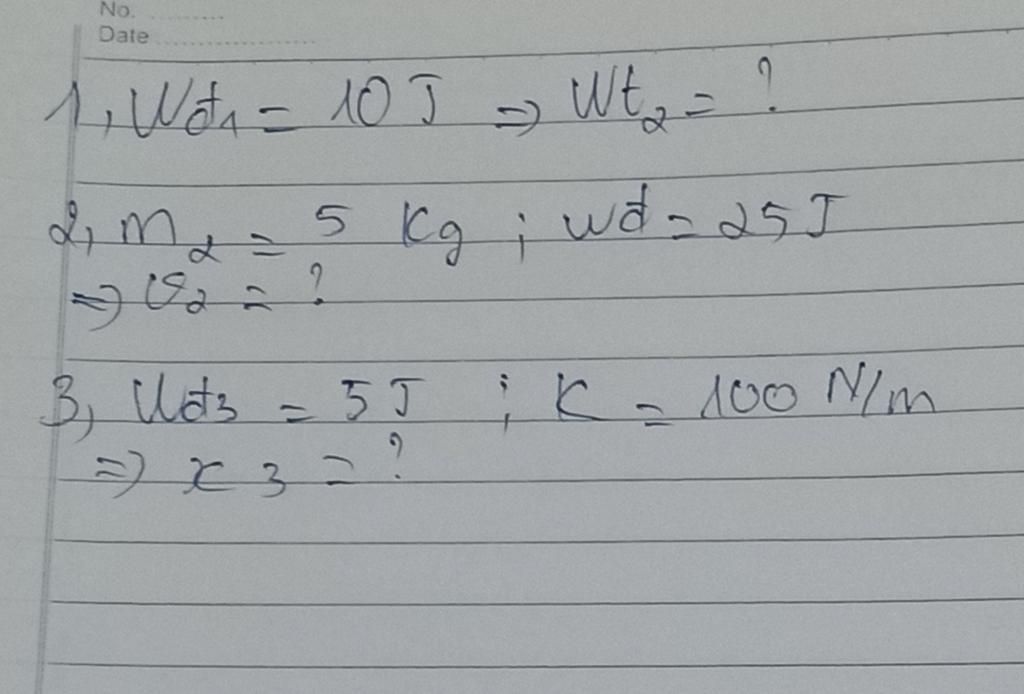 No. ............
Date ..........................
1, Wđ₁ = 10 J => Wt₂ = ?
2, m₂ = 5 Kg ; wđ = 25 J
=> v₂ = ?
3, Wđ₃ = 5 J ; K = 100 N/m
=> x₃ = ?